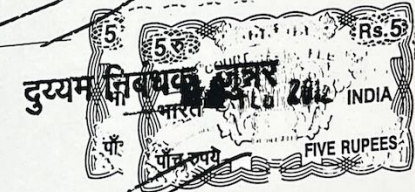 5 5 रु Rs.5
दुय्यम निबंधक जुन्नर
भारत 2012 INDIA
पाँच रुपये FIVE RUPEES